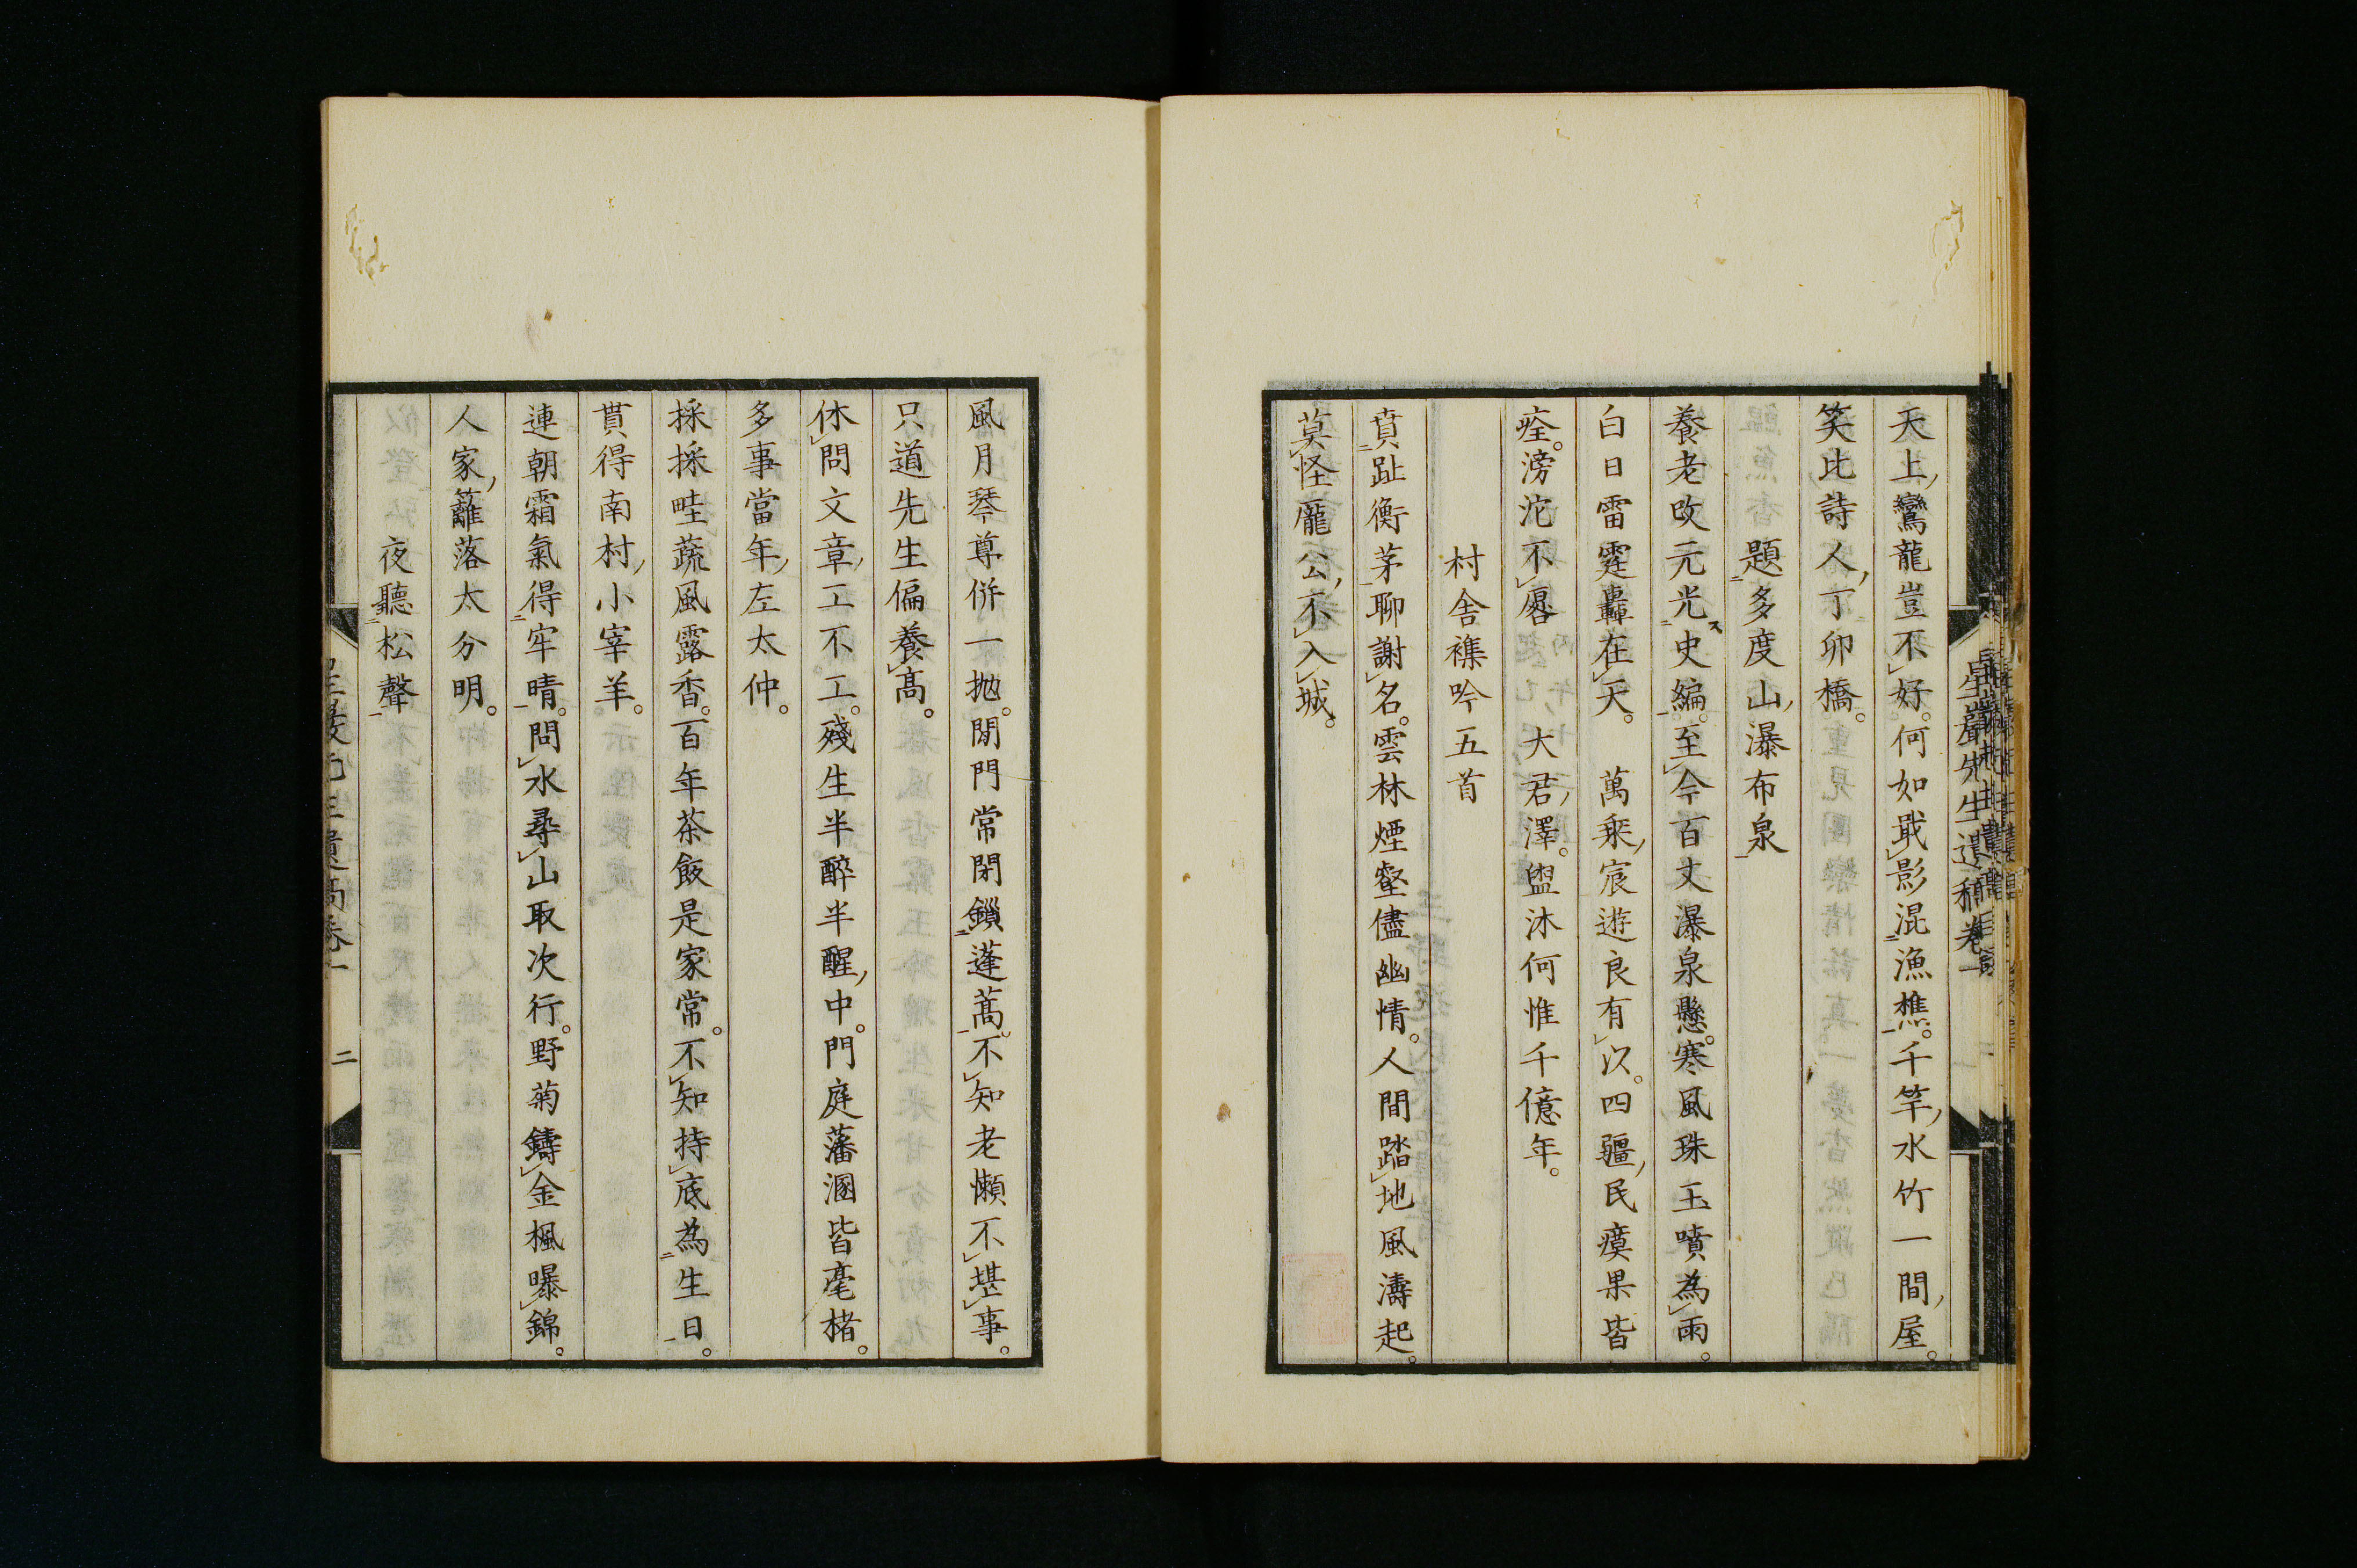 天上鸞龍豈不好。何如戢影混漁樵。千竿水竹一間屋。
笑比詩人丁卯橋。
題多度山瀑布泉
養老改元光史編。至今百丈瀑泉懸。寒風珠玉噴為雨。
白日雷霆轟在天。萬乘宸遊良有以。四疆民瘼果皆
痊。滂沱不啻大君澤。盥沐何惟千億年。
村舍襍吟五首
賁趾衡茅聊謝名。雲林煙壑儘幽情。人間踏地風濤起。
莫怪龐公不入城。
星巖先生遺稿卷一
風月琴尊併一拋。閒門常閉鎖蓬蒿。不知老懶不堪事。
只道先生偏養高。
休問文章工不工。殘生半醉半醒中。門庭藩溷皆毫楮。
多事當年左太仲。
採採畦蔬風露香。百年茶飯是家常。不知持底為生日。
貰得南村小宰羊。
連朝霜氣得牢晴。問水尋山取次行。野菊鑄金楓曝錦。
人家籬落太分明。
夜聽松聲
二